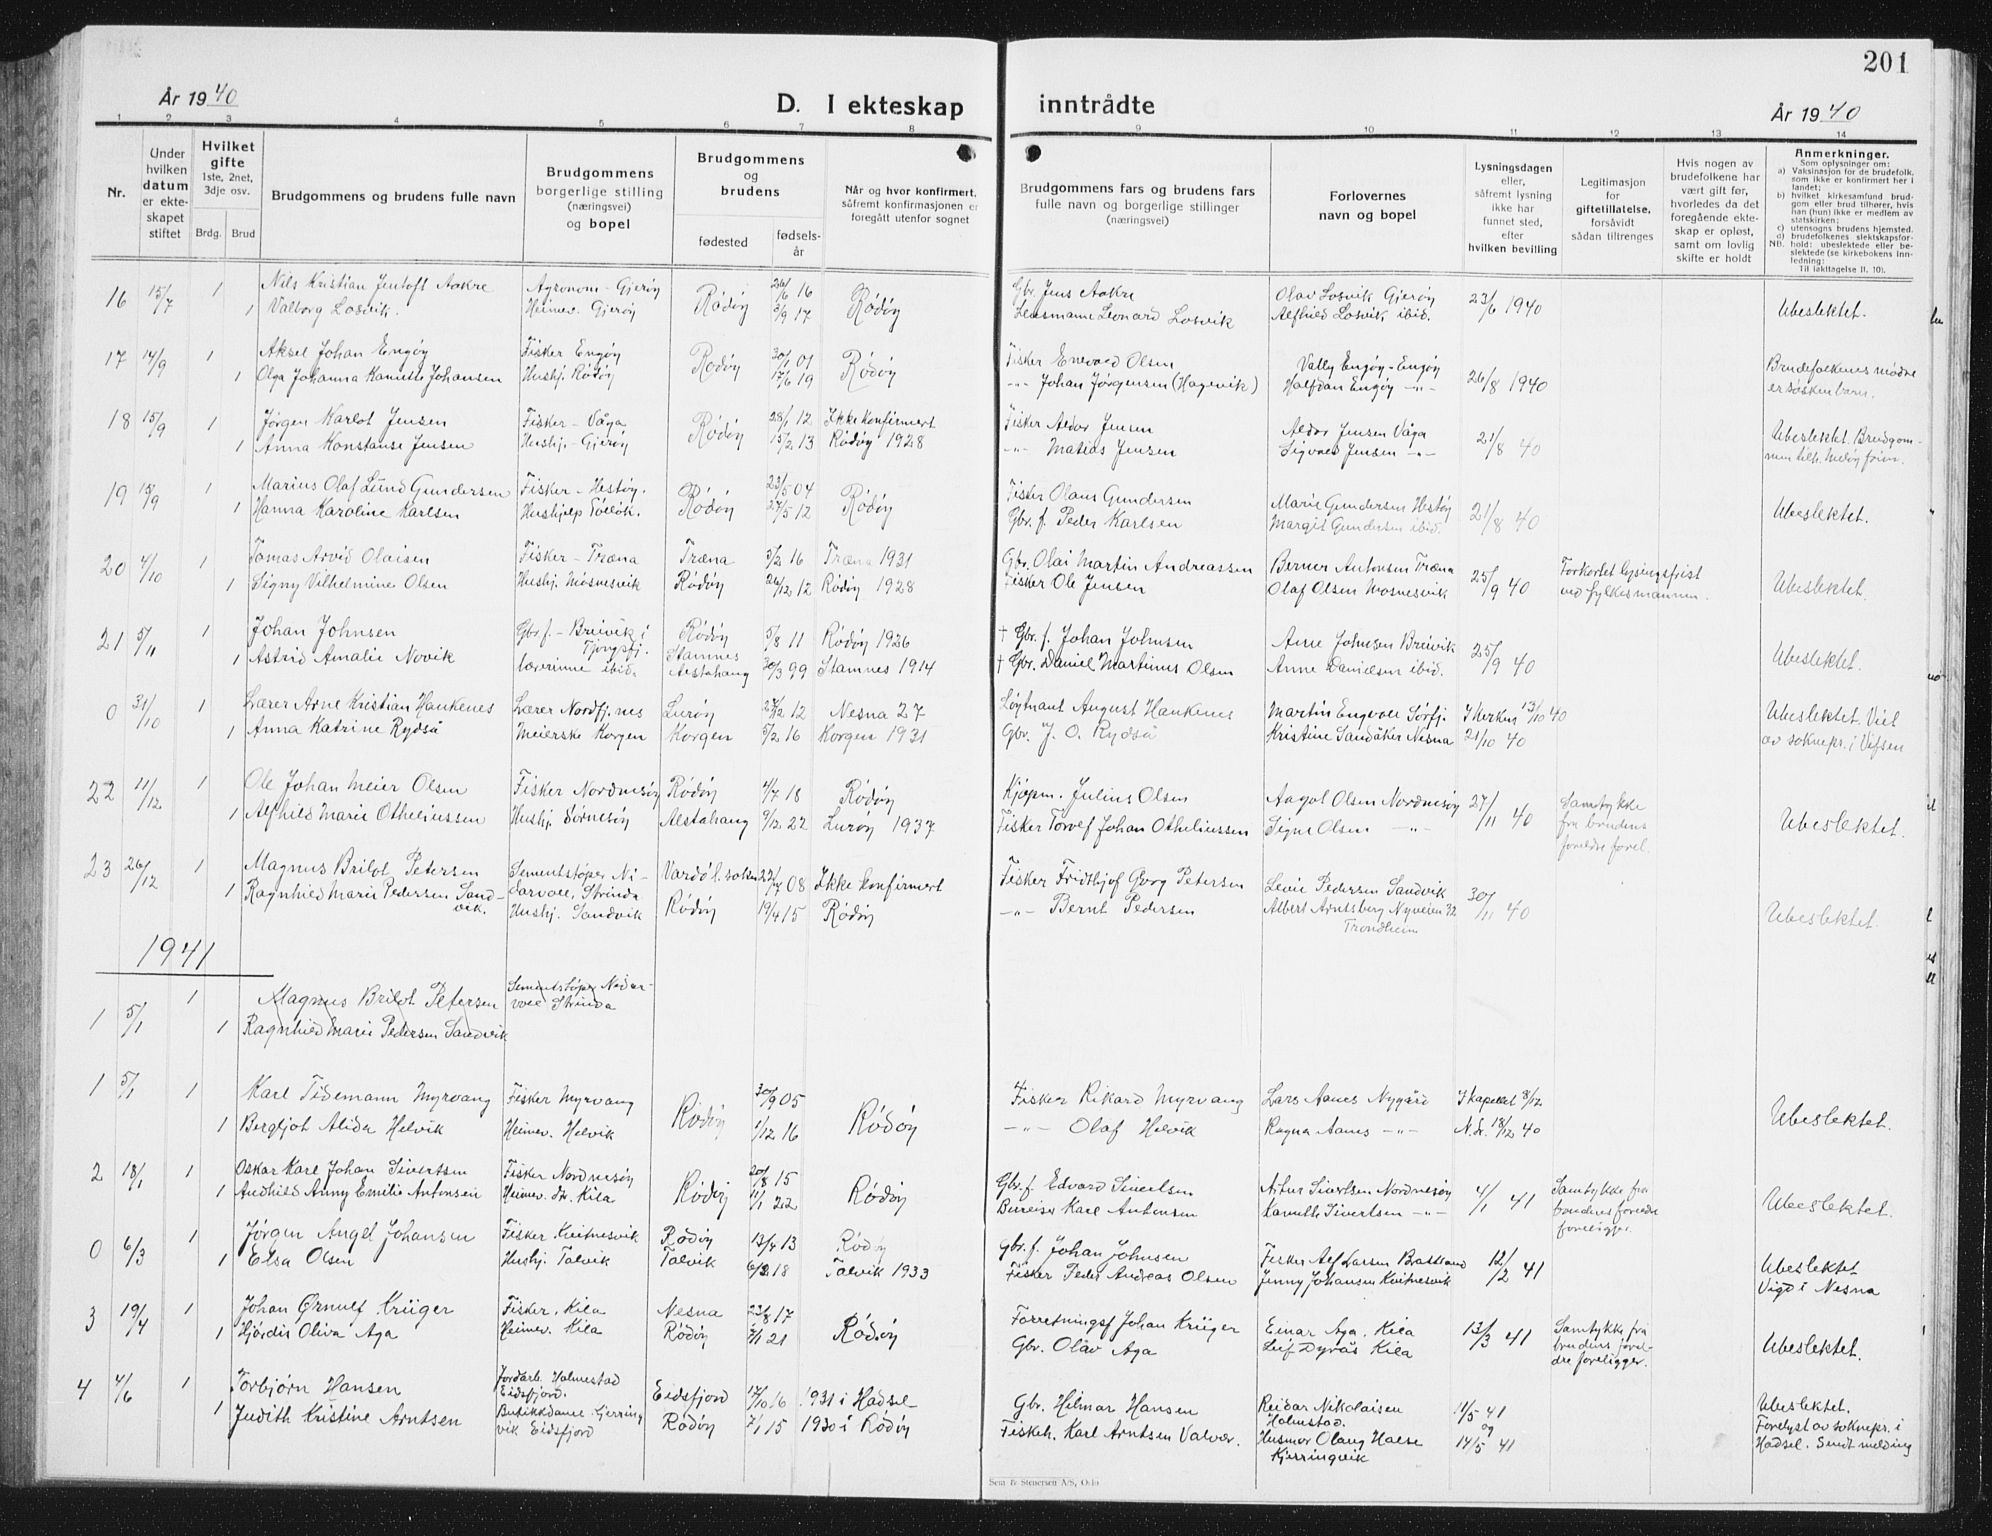 201
År 1940
D. I ekteskap inntrådte
År 1940
1 2 3 4 5 6 7 8 9 10 11 12 13 14
Nr.
Under hvilken datum er ekteskapet stiftet
Hvilket gifte 1ste, 2net, 3dje osv.
Brdg. Brud
Brudgommens og brudens fulle navn
Brudgommens borgerlige stilling (næringsvei) og bopel
Brudgommens og brudens
fødested
fødselsår
Når og hvor konfirmert, såfremt konfirmasjonen er foregått utenfor sognet
Brudgommens fars og brudens fars fulle navn og borgerlige stillinger (næringsvei)
Forlovernes navn og bopel
Lysningsdagen eller, såfremt lysning ikke har funnet sted, efter hvilken bevilling
Legitimasjon for giftetillatelse, forsåvidt sådan tiltrenges
Hvis nogen av brudefolkene har vært gift før, hvorledes da det foregående ekteskap er opløst, samt om lovlig skifte er holdt
Anmerkninger.
Som oplysninger om:
a) Vaksinasjon for de brudefolk, som ikke er konfirmert her i landet;
b) hvilket kirkesamfund brudgom eller brud tilhører, hvis han (hun) ikke er medlem av statskirken;
c) utensogns brudens hjemsted.
d) brudefolkenes slektskapsforhold:
NB. ubeslektede eller beslektede (se kirkebokens innledning:
Til iakttagelse II, 10).
16 15/7 1 Nils Kristian Jentoft Aakre Agronom - Gjerøy Rødøy 26/6 16 Rødøy Gbr. Jens Aakre Olav Losvik Gjerøy 23/6 1940 Ubeslektet.
1 Valborg Losvik. Heimev. Gjerøy 3/9 17 Lensmann Leonard Losvik Alfhild Losvik ibid.
17 14/9 1 Aksel Johan Engøy Fisker Engøy Rødøy 30/1 01 Rødøy Fisker Enevald Olsen Vally Engøy - Engøy 26/8 1940 Brudefolkenes mødre
1 Olga Johanna Kamitte Johansen Hushj. Rødøy 17/6 19 -"- Johan Jørgensen (Hagevik) Halfdan Engøy -"- er søskenbarn.
18 15/9 1 Jørgen Karlot Jensen Fisker - Våga Rødøy 28/1 12 Ikke konfirmert Fisker Aldor Jensen Aldor Jensen Våga 21/8 40 Ubeslektet. Brudgom-
1 Anna Konstanse Jensen Hushj. - Gjerøy 15/2 13 Rødøy 1928 -"- Matias Jensen Sigvald Jensen -"- men tilh. Meløy frim.
19 15/9 1 Marius Olaf Lund Gundersen Fisker - Hestøy. Rødøy 23/5 04 Rødøy Fisker Olaus Gundersen Marie Gundersen Hestøy 21/8 40 Ubeslektet.
1 Hanna Karoline Karlsen Hushjelp Selsøk. 27/5 12 Gbr. f. Peder Karlsen Margit Gundersen ibid.
20 4/10 1 Tomas Arvid Olaisen Fisker - Træna Træna 3/2 16 Træna 1931 Gbr. Olai Martin Andreassen Berner Antonsen Træna 25/9 40 Forkortet lysingsfrist Ubeslektet.
1 Signy Vilhelmine Olsen Hushj. Mosnesvik Rødøy 26/12 12 Rødøy 1928 Fisker Ole Jensen Olaf Olsen Mosnesvik ved fylkesmannen.
21 5/11 1 Johan Johnsen Gbr f. - Breivik i Tjongsfj. Rødøy 5/8 11 Rødøy 1926 † Gbr. f. Johan Johnsen Arne Johnsen Breivik 25/9 40 Ubeslektet.
1 Astrid Amalie Novik lærerinne ibid. Stamnes Alstahaug 30/3 99 Stamnes 1914 † Gbr. Daniel Martinus Olsen Anne Danielsen ibid.
0 31/10 1 Lærer Arne Kristian Hankenes Lærer Nordfj.nes Lurøy 27/2 12 Nesna 27 Løytnant August Hankenes Martin Engvoll Sørfj. I Kerken 13/10 40 Ubeslektet. Viet
1 Anna Katrine Rydså Meierske Korgen Korgen 5/2 16 Korgen 1931 Gbr. J. O. Rydså Kristine Sandåker Nesna 21/10 40 av soknepr. i Vefsen
22 11/12 1 Ole Johan Meier Olsen Fisker Nordnesøy Rødøy 4/7 18 Rødøy Kjøpm. Julius Olsen Aagot Olsen Nordnesøy 27/11 40 Samtykke Ubeslektet.
1 Alfhild Marie Otheliussen Hushj. Sørnesøy Alstahaug 9/12 22 Lurøy 1937 Fisker Torlef Johan Otheliussen Signe Olsen -"- fra brudens foreldre forel.
23 26/12 1 Magnus Brilot Petersen Sementstøper Nidarvoll, Strinda Vardø l. sokn 22/7 08 Ikke konfirmert Fisker Fridthjof Georg Petersen Levie Pedersen Sandvik 30/11 40 Ubeslektet.
1 Ragnhild Marie Pedersen Sandvik. Hushj. Sandvik Rødøy 19/4 15 Rødøy -"- Bernt Pedersen Albert Arntsberg Nyveien 32 Trondheim
1941
1 5/1 1 Magnus Brilot Petersen Sementstøper Nidarvoll Strinda
1 Ragnhild Marie Pedersen Sandvik
1 5/1 1 Karl Tidemann Myrvang Fisker Myrvang Rødøy 30/9 05 Rødøy Fisker Rikard Myrvang Lars Aanes Nygård I kapellet 8/12 Ubeslektet.
1 Bergljot Alida Helvik Heimev. Helvik 1/12 16 -"- Olaf Helvik Ragna Aanes -"- N. Sr. 18/12 40
2 18/1 1 Oskar Karl Johan Sivertsen Fisker Nordnesøy Rødøy 20/8 15 Rødøy Gbr. f. Edvard Sivertsen Artur Sivertsen Nordnesøy 4/1 41 Samtykke fra Ubeslektet.
1 Audhild Anny Emilie Antonsen Heimev. Kila 11/1 22 Bureiser Karl Antonsen Kamitte Sivertsen -"- brudens foreldre foreligger.
0 6/3 1 Jørgen Angel Johansen Fisker Kvitnesvik Rødøy 13/4 13 Rødøy Gbr. f. Johan Johnsen Fisker Alf Larsen Bratland 12/2 41 Ubeslektet
1 Elsa Olsen Hushj. Talvik Talvik 18 Talvik 1933 Fisker Peder Andreas Olsen Jenny Johansen Kvitnesvik Vigd i Nesna
3 19/4 1 Johan Ørnulf Krüger Fisker. Kila Nesna 23/8 17 Rødøy Forretningsf Johan Krüger Einar Aga. Kila 13/3 41 Samtykke fra Ubeslektet.
1 Hjørdis Oliva Aga Heimev. Kila Rødøy 7/1 21 Gbr. Olav Aga Leif Dyrås Kila brudens foreldre foreligger.
4 4/6 1 Torbjørn Hansen Jordarb. Holmestad Eidsfjord. Eidsfjord 17/10 16 1931 i Hadsel Gbr. Hilmar Hansen Reidar Nikolaisen Holmstad. 11/5 41 og Ubeslektet.
1 Judith Kristine Arntsen Butikkdame. Gjerringvik Eidsfjord Rødøy 7/1 15 1930 i Rødøy Fiskeh. Karl Arntsen Valvær. Husmor Olaug Halse Kjerringvik 14/5 41 Forelyst av soknepr. i Hadsel. Sendt melding
Sem & Stenersen A/S, Oslo